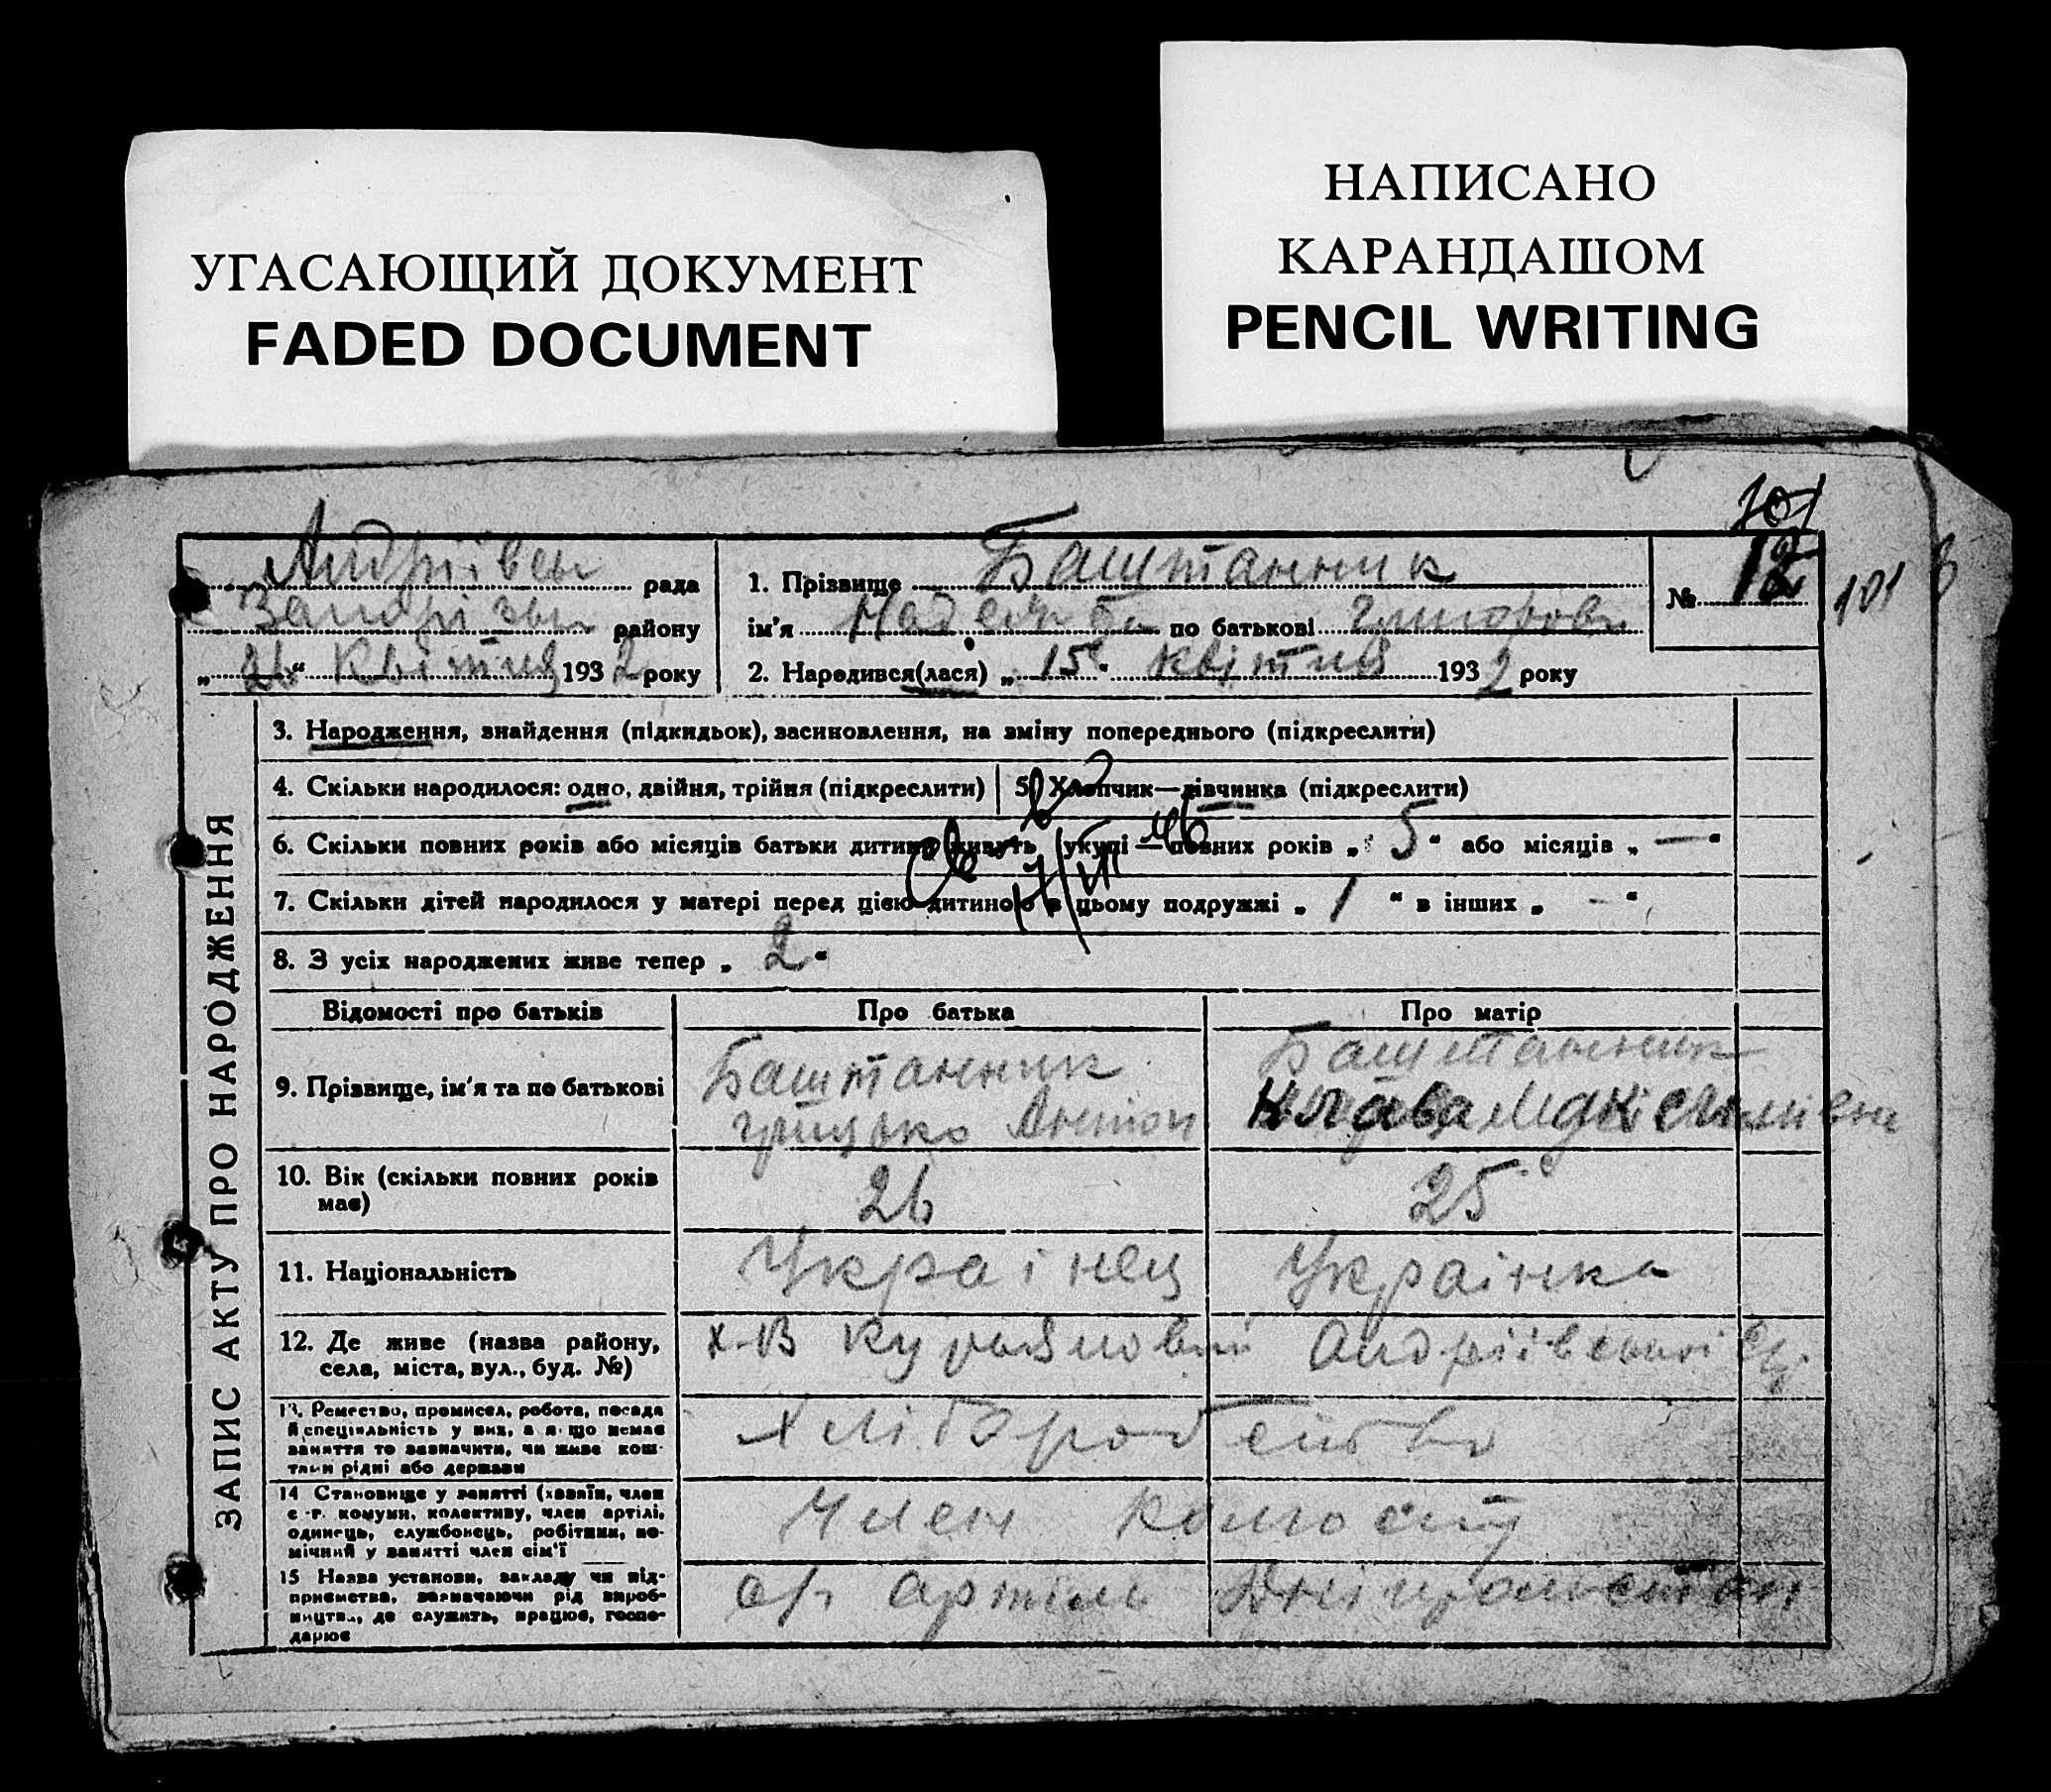 УГАСАЮЩИЙ ДОКУМЕНТ
FADED DOCUMENT
НАПИСАНО
КАРАНДАШОМ
PENCIL WRITING
101
рада
району
„26“ Квітня 1932 року
1. Прізвище Баштанник
ім'я Надежда по батькові
2. Народився(лася) „15“ квітня 1932 року
№ 12
101
ЗАПИС АКТУ ПРО НАРОДЖЕННЯ
3. Народження, знайдення (підкидьок), засиновлення, на зміну попереднього (підкреслити)
4. Скільки народилося: одно, двійня, трійня (підкреслити)
5. Хлопчик—дівчинка (підкреслити)
6. Скільки повних років або місяців батьки дитини живуть укупі — повних років „5“ або місяців „—“
7. Скільки дітей народилося у матері перед цією дитиною в цьому подружжі „1“ в інших „-“
8. З усіх народжених живе тепер „2“
Відомості про батьків Про батька Про матір
9. Прізвище, ім'я та по батькові
Баштанник
Грицько Антон
Баштанник
Клава
10. Вік (скільки повних років
має)
26
25
11. Національність
Українец
Українка
12. Де живе (назва району,
села, міста, вул., буд. №)
х-в
13. Ремество, промисел, робота, посада
й спеціяльність у них, а якщо немає
заняття то зазначити, чи живе кош-
тами рідні або держави
Хлібороб
14 Становище у занятті (хазяїн, член
с.-г. комуни, колективу, член артілі,
одинець, службовець, робітник, по-
мічний у занятті член сім'ї
Член
15 Назва установи, закладу чи під-
приємства, зазначаючи рід вироб-
ництв., де служить, працює, госпо-
дарює
с/г артіль